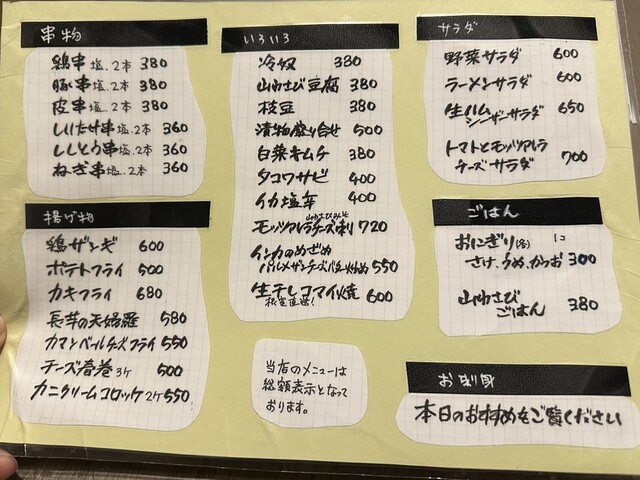 串物
鶏串 塩.2本 380
豚串 塩.2本 380
皮串 塩.2本 380
しいたけ串 塩.2本 360
ししとう串 塩.2本 360
ねぎ串 塩.2本 360
揚げ物
鶏ザンギ 600
ポテトフライ 500
カキフライ 680
長芋の天婦羅 580
カマンベールチーズフライ 550
チーズ春巻 3ケ 500
カニクリームコロッケ 2ケ 550
いろいろ
冷奴 380
山わさび豆腐 380
枝豆 380
漬物盛り合せ 500
白菜キムチ 380
タコワサビ 400
イカ塩辛 400
モッツァレラチーズ刺 720
インカのめざめ
パルメザンチーズバター炒め 550
生干しコマイ焼 600
根室直送!
当店のメニューは
総額表示となって
おります。
サラダ
野菜サラダ 600
ラーメンサラダ 600
生ハム
シーザーサラダ 650
トマトとモッツァレラ
チーズサラダ 700
ごはん
おにぎり(各) 1コ
さけ、うめ、かつお 300
山わさび
ごはん 380
お刺身
本日のおすすめをご覧ください